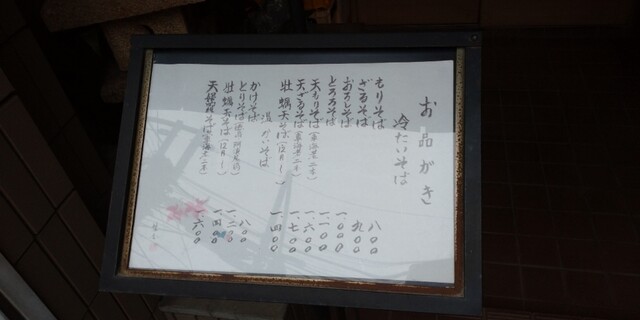 お品がき
冷たいそば
もりそば 八〇〇
ざるそば 九〇〇
おろしそば 一、〇〇〇
とろろそば 一、一〇〇
天もりそば(車海老二本) 一、六〇〇
天ざるそば(車海老二本) 一、七〇〇
牡蠣天そば(12月〜) 一、四〇〇
温かいそば
かけそば 八〇〇
とりそば 一、二〇〇
牡蠣天そば(12月〜) 一、四〇〇
天ぷらそば(車海老二本) 一、六〇〇